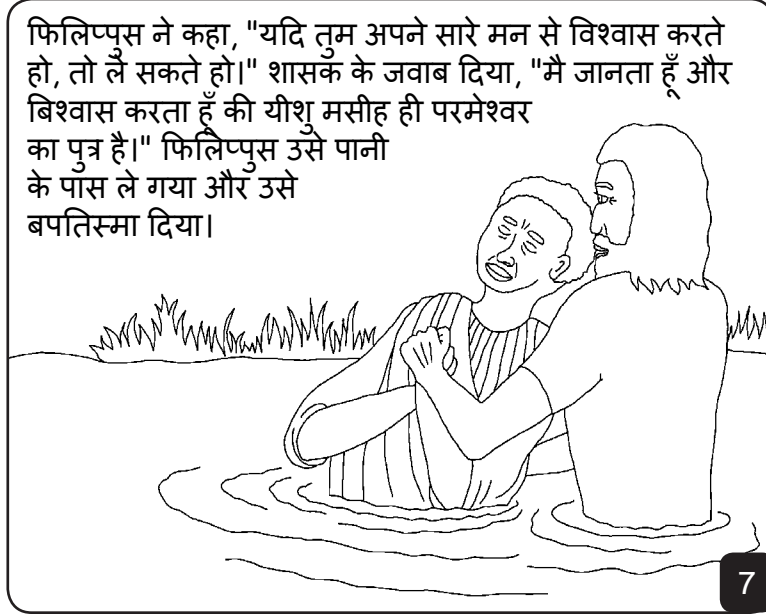 फिलिप्पुस ने कहा, "यदि तुम अपने सारे मन से विश्वास करते
हो, तो ले सकते हो।" शासक के जवाब दिया, "मै जानता हूँ और
बिश्वास करता हूँ की यीशु मसीह ही परमेश्वर
का पुत्र है।" फिलिप्पुस उसे पानी
के पास ले गया और उसे
बपतिस्मा दिया।
7